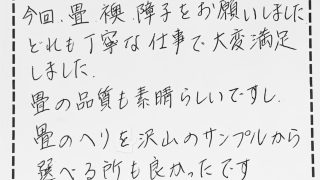 今回、畳、襖、障子をお願いしました
どれも丁寧な仕事で大変満足
しました.
畳の品質も素晴らしいですし.
畳のヘリを沢山のサンプルから
選べる所も良かったです